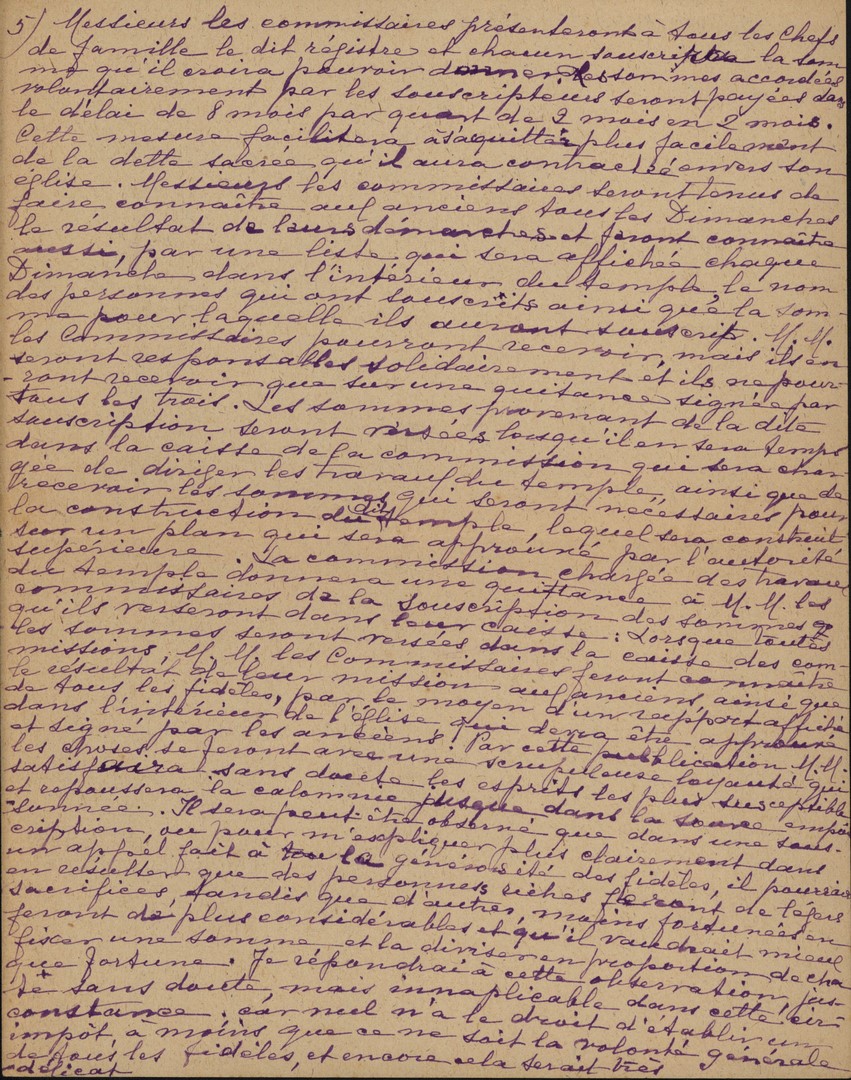 5) Messieurs les commissaires présenteront à tous les Chefs
de famille le dit régistre et chacun souscrira la som-
me qu'il croira pouvoir donner. Les sommes accordées
volontairement par les souscripteurs seront payées dans
le délai de 8 mois par quart de 2 mois en 2 mois.
Cette mesure facilitera à s'aquitter plus facilement
de la dette sacrée qu'il aura contractré envers son
église. Messieurs les commissaires seront tenus de
faire connaître aux anciens tous les Dimanches
le résultat de leurs démarches et feront connaître
aussi, par une liste qui sera affichée chaque
Dimanche dans l'intérieur du temple, le nom
des personnes qui ont souscrits ainsi que la som-
me pour laquelle ils auront souscrit. M.M.
les Commissaires pourront recevoir, mais ils en
seront responsables solidairement et ils ne pour-
-ront recevoir que sur une quitance signée par
tous les trois. Les sommes provenant de la dite
souscription seront versées lorsqu'il en sera temps
dans la caisse de la commission qui sera char-
gée de diriger les travaux du temple, ainsi que de
recevoir les sommes qui seront nécessaires pour
la construction du dit temple, lequel sera construit
sur un plan qui sera approuvé par l'autorité
supérieure. La commission chargée des travaux
du temple donnera une quittance à M.M. les
commissaires de la souscription des sommes q
qu'ils verseront dans leur caisse: Lorsque toutes
les sommes seront versées dans la caisse des com-
missions, M.M. les Commissaires feront connaître
le résultat de leur mission aux anciens, ainsi que
de tous les fidèles, par le moyen d'un rapport affiché
dans l'intérieur de l'église qui devra être approuvé
et signé par les anciens. Par cette publication M.M.
les choses se feront avec une scrupuleuse loyauté qui
satisfaira sans doute les esprits les plus susceptible
et repoussera la calomnie jusque dans la source empoi
-sonnée. Il sera peut-être observé que dans une sous-
cription, ou pour m'expliquer plus clairement dans
un appel fait à la générosité des fidèles, il pourrait
en résulter que des personnes riches feront de légers
sacrifices, tandis que d'autres, moins fortunées en
feront de plus considérables et qu'il vaudrait mieux
fixer une somme et la diviser en proportion de cha
que fortune. Je répondrai à cette observation, jus-
te sans doute, mais innaplicable dans cette cir-
constance. car nul n'a le droit d'établir un
impôt à moins que ce ne soit la volonté générale
de tous les fidèles, et encore cela serait très
délicat